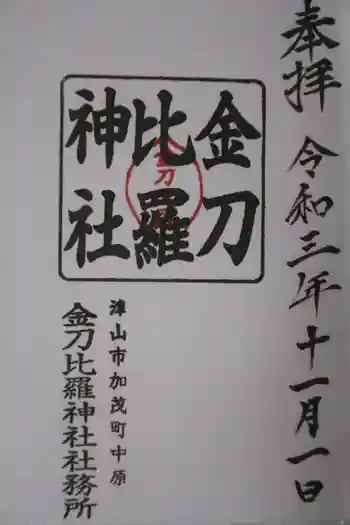 奉拝 令和三年十一月一日
金刀
比羅
神社
津山市加茂町中原
金刀比羅神社社務所